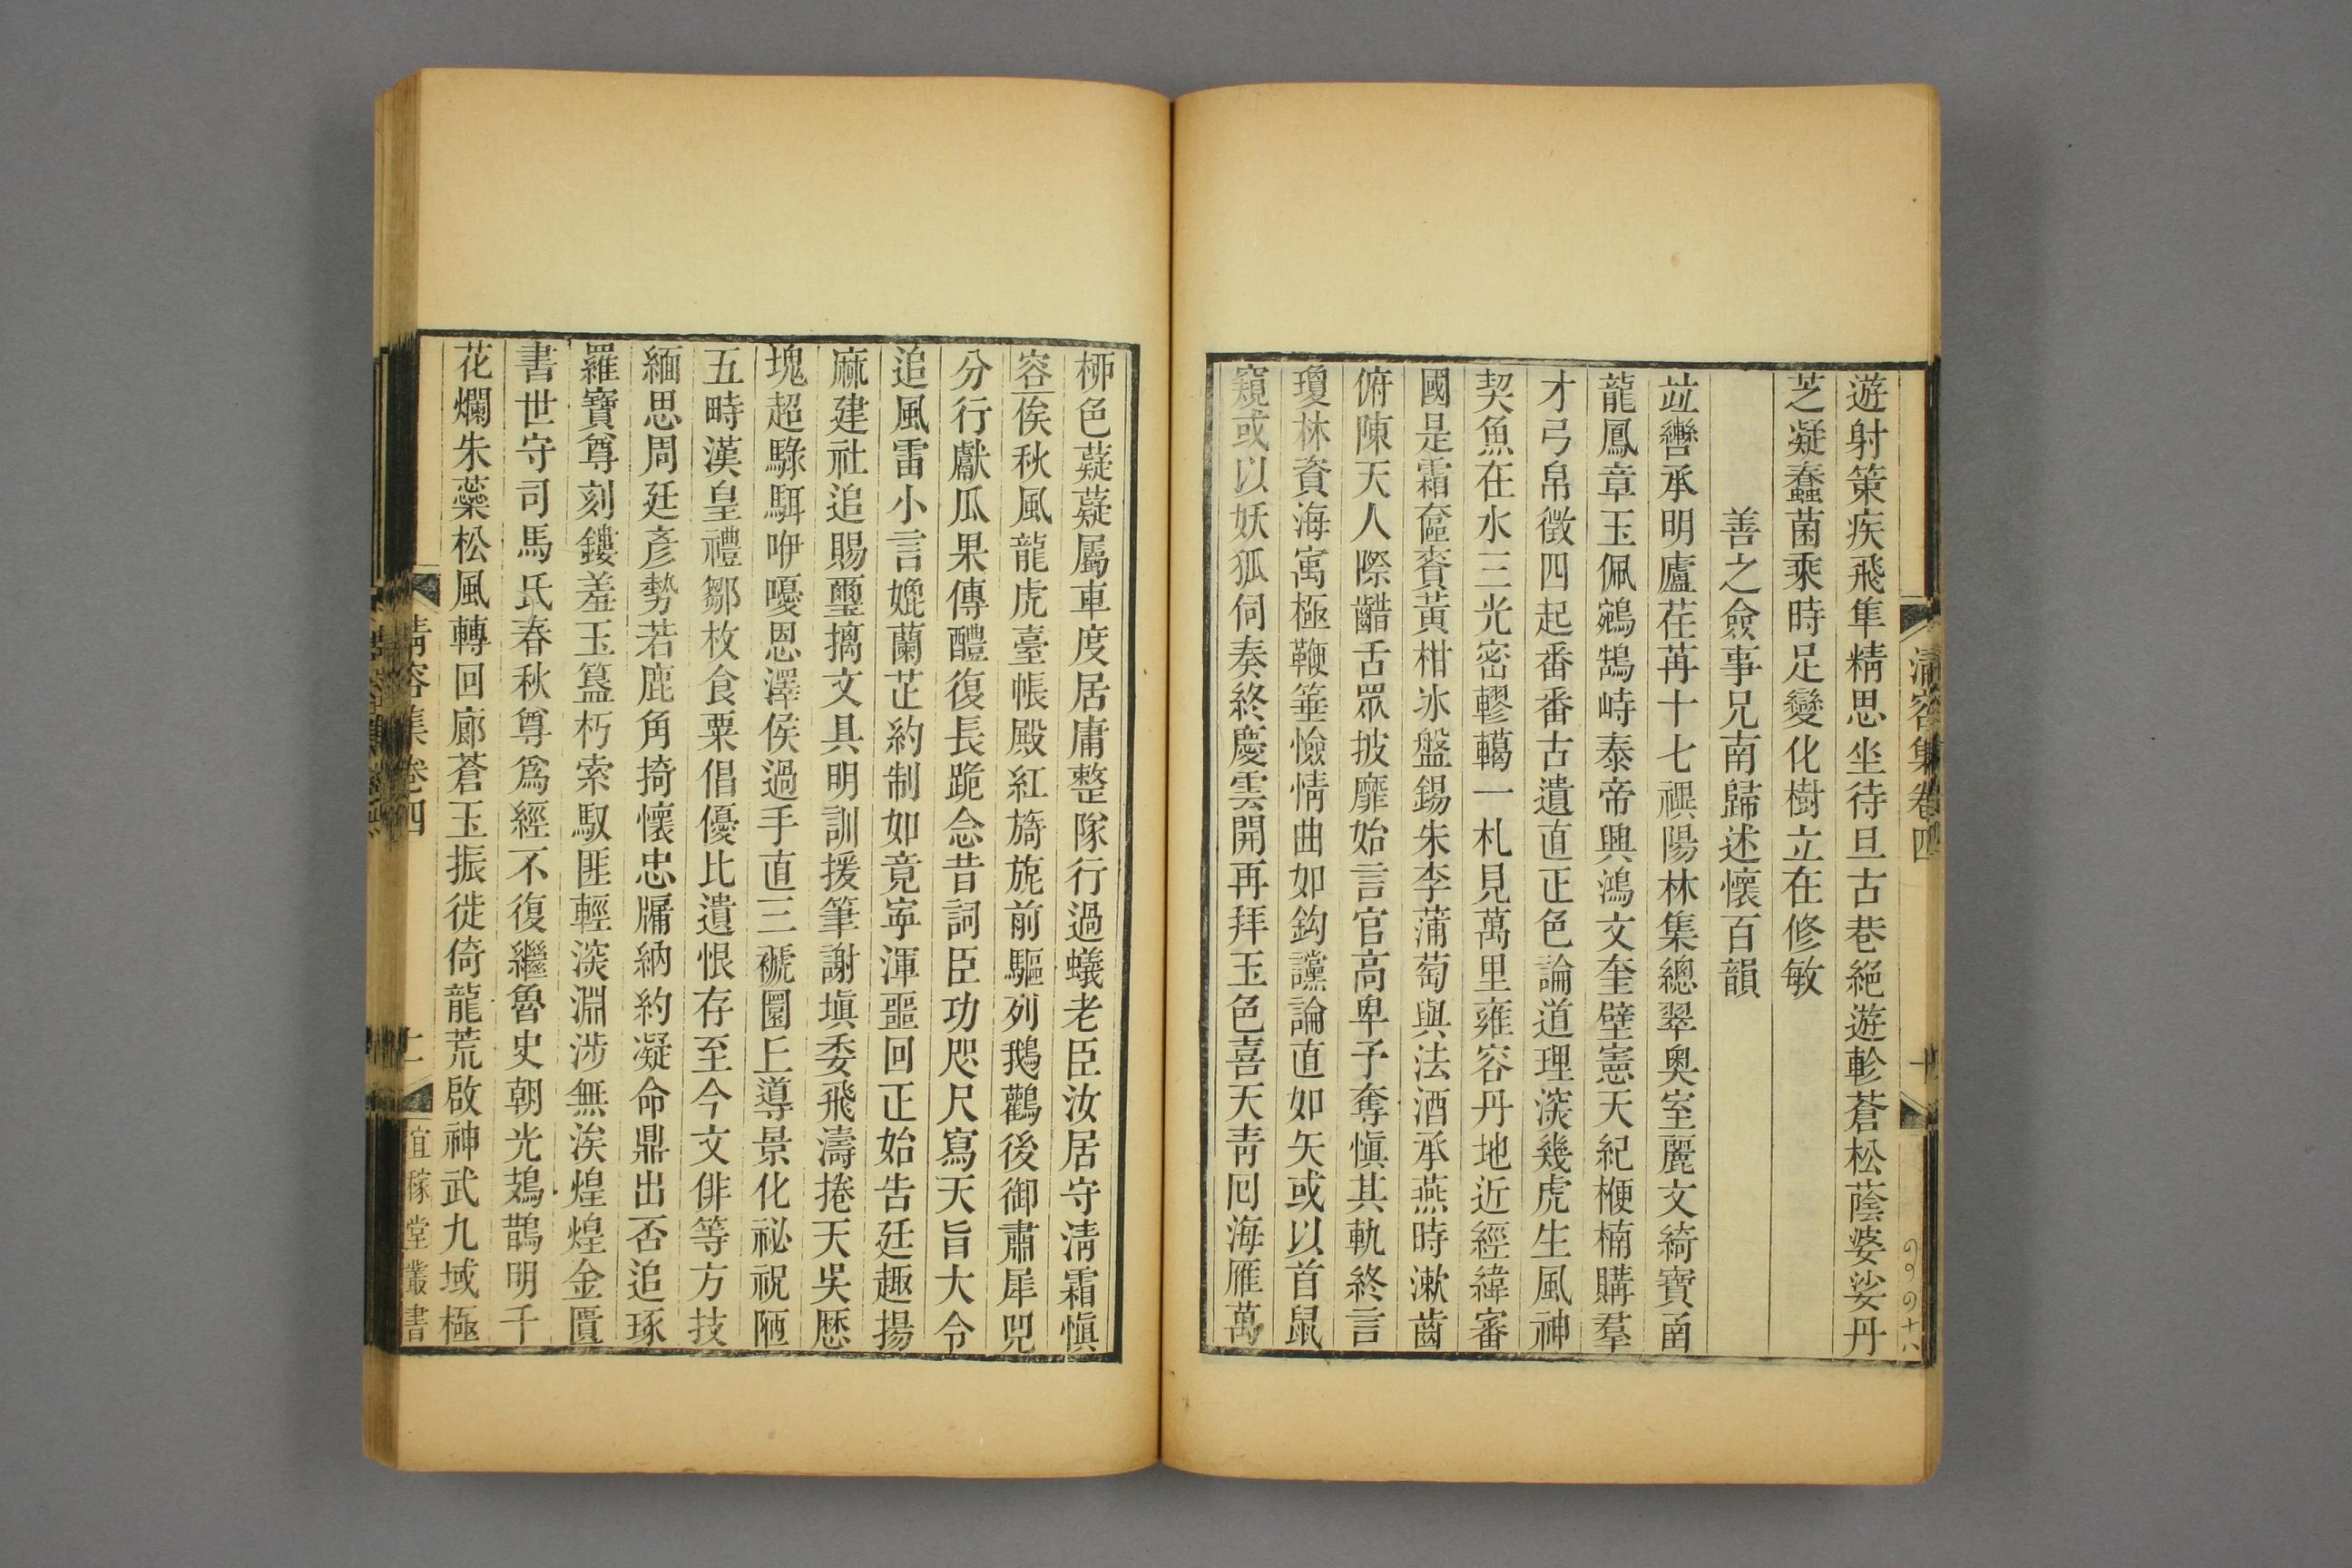 清容集卷四
遊射策疾飛隼精思坐待旦古巷絕遊軫蒼松蔭婆娑丹
芝凝蠢菌乘時足變化樹立在修敏
善之僉事兄南歸述懷百韻
竝轡承明廬荏苒十七禩陽林集總翠奧室麗文綺寶函
龍鳳章玉佩鵷鵠峙泰帝興鴻文奎壁憲天紀楩楠購羣
才弓帛徵四起番番古遺直正色論道理深幾虎生風神
契魚在水三光密轇轕一札見萬里雍容丹地近經緯審
國是霜奩賚黃柑冰盤錫朱李蒲萄與法酒承燕時漱齒
俯陳天人際齰舌眾披靡始言官高卑予奪愼其軌終言
瓊林資海寓極鞭箠憸情曲如鈎讜論直如矢或以首鼠
窺或以妖狐伺奏終慶雲開再拜玉色喜天靑囘海雁萬
桺色薿薿屬車度居庸整隊行過蟻老臣汝居守淸霜愼
容俟秋風龍虎臺帳殿紅旖旎前驅列鵝鸛後御肅犀兕
分行獻瓜果傳醴復長跪念昔詞臣功咫尺寫天旨大令
追風雷小言媲蘭芷約制如竟寧渾噩回正始告廷趣揚
麻建社追賜璽摛文具明訓援筆謝塡委飛濤捲天吳歷
塊超騄駬咿嚘恩澤侯過手直三褫圜丘導景化祕祝陋
五畤漢皇禮鄒枚食粟倡優比遺恨存至今文俳等方技
緬思周廷彥勢若鹿角掎懷忠牖納約凝命鼎出否追琢
羅寶尊刻鏤羞玉簋朽索馭匪輕深淵涉無涘煌煌金匱
書世守司馬氏春秋尊爲經不復繼魯史朝光鳷鵲明千
花爛朱蘂松風轉回廊蒼玉振徙倚龍荒啟神武九域極
清容集卷四
宜稼堂叢書